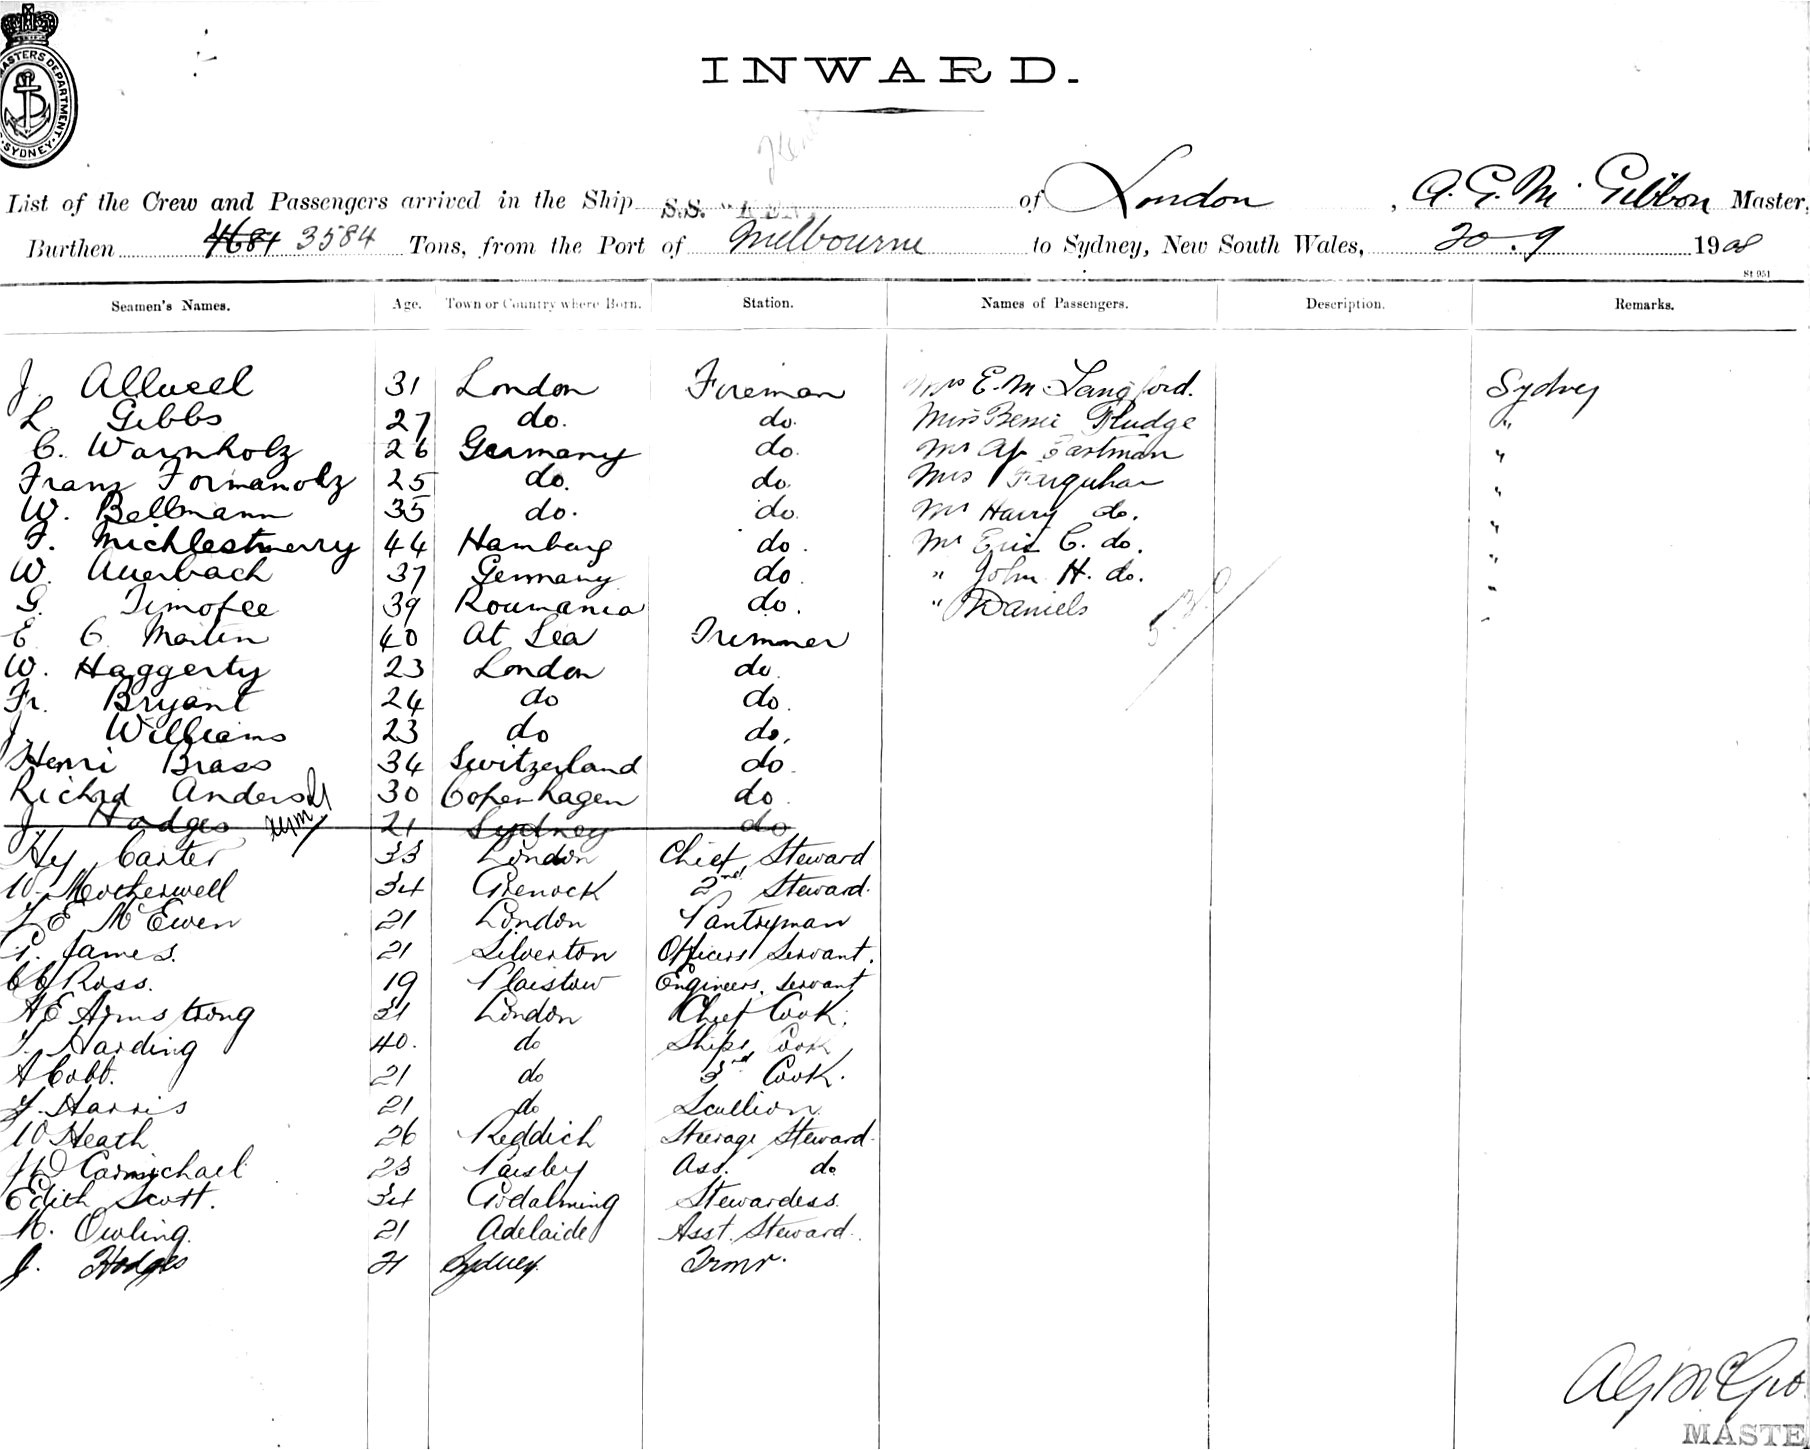 MASTERS DEPARTMENT
SYDNEY
INWARD.
List of the Crew and Passengers arrived in the Ship S.S. "KENT of London, A. G. M. Gibbon Master,
Burthen 4681 3584 Tons, from the Port of Melbourne to Sydney, New South Wales, 20.9 1908
St 951
Seamen's Names. Age. Town or Country where Born. Station. Names of Passengers. Description. Remarks.
J. Allwell 31 London Fireman Mrs E. M Langford. Sydney
L. Gibbs 27 do. do. Miss Bessie Fludge "
C. Warnholz 26 Germany do. Mr Eastman "
Franz Formanolz 25 do. do. Mrs Farquhar "
W. Bellmann 35 do. do. Mr Harry do. "
F. Michlestmerry 44 Hamburg do. Mr Eric C. do. "
W. Auerbach 37 Germany do. " John H. do. "
G. Timofee 39 Roumania do. " Daniels "
E C. Martin 40 At Sea Trimmer
W. Haggerty 23 London do.
Fr. Bryant 24 do do.
J. Williams 23 do do.
Henri Brass 34 Switzerland do.
Richrd Anders 30 Copenhagen do.
J. Hodges 21 Sydney do
Hy Carter 33 London Chief Steward
W. Motherwell 34 Grenock 2nd Steward.
E McEwen 21 London Pantryman
James. 21 Silverton Officers Servant.
Ross. 19 Plaistow Engineers. Servant
H E Armstrong 31 London Chief Cook.
T. Harding 40. do Ships Cook
A Cobb. 21 do 3rd Cook.
Harris 21 do Scullion.
W Heath 26 Reddich Steerage Steward
Carmichael 23 Paisley Ass. do
Edith Scott. 34 Godalming Stewardess.
M. Owling. 21 Adelaide Asst. Steward.
J. Hodges 21 Sydney. Trmr.
MASTE